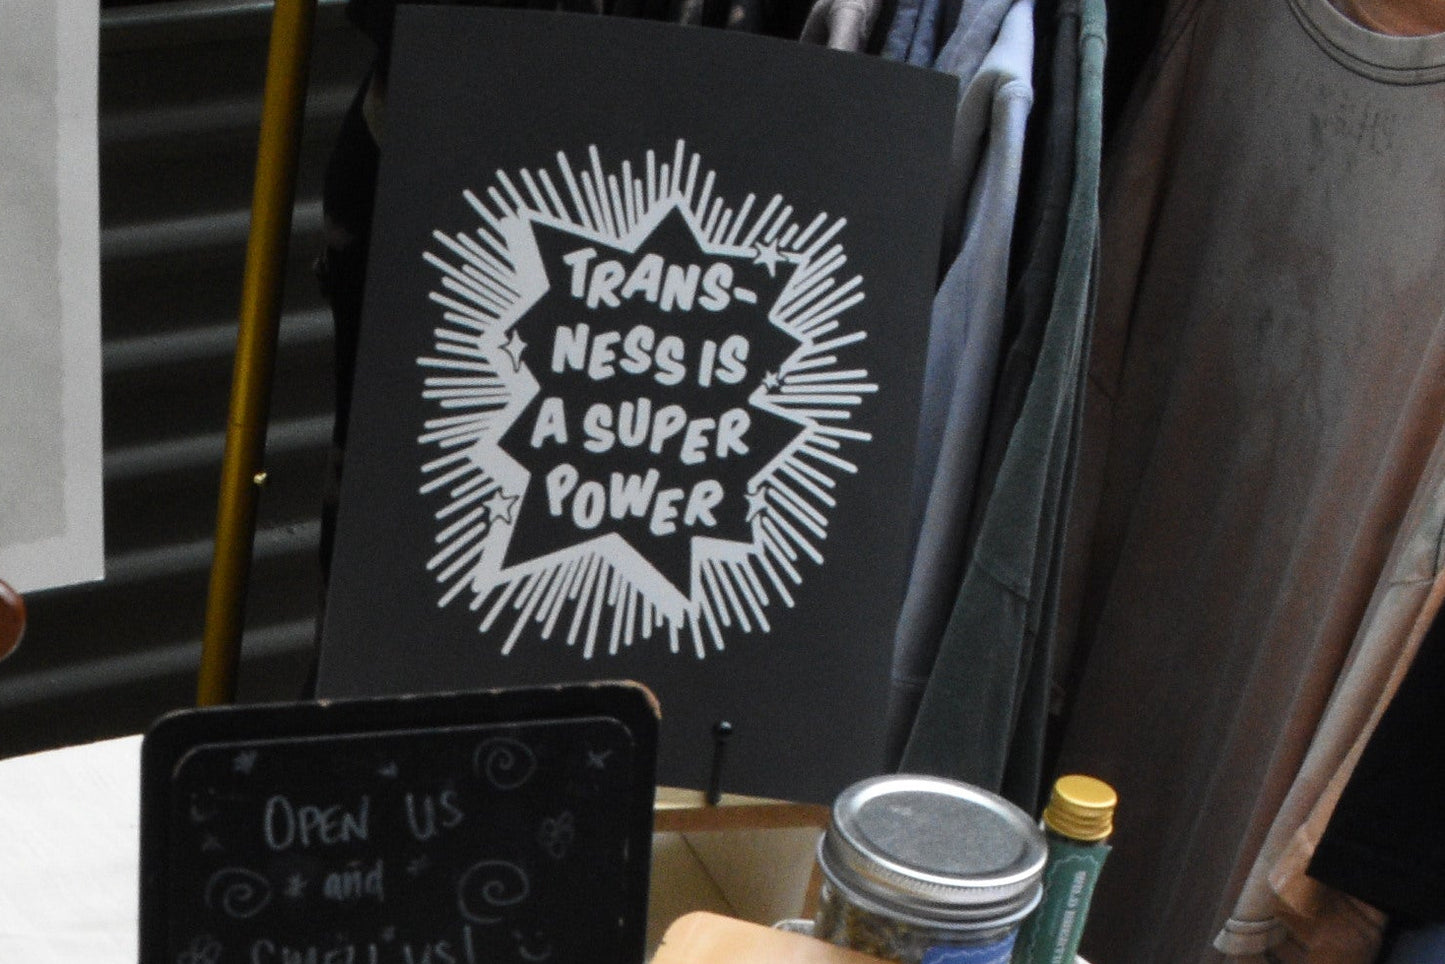 TRANS-
NESS IS
A SUPER
POWER
OPEN US
and
SMELL US!